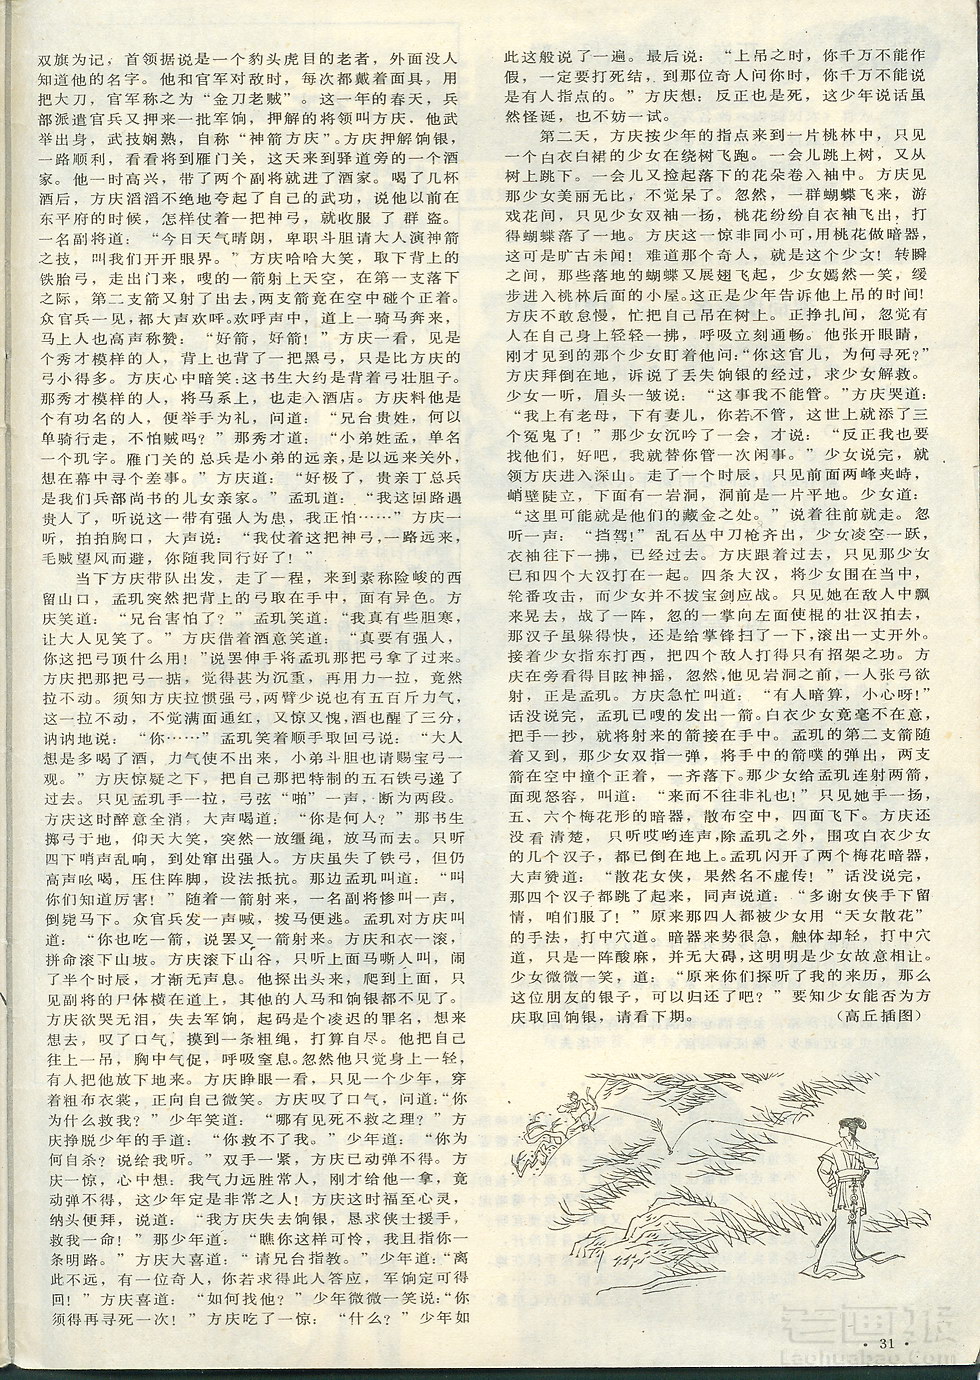 双旗为记，首领据说是一个豹头虎目的老者，外面没人
知道他的名字。他和官军对敌时，每次都戴着面具，用
把大刀，官军称之为“金刀老贼”。这一年的春天，兵
部派遣官兵又押来一批军饷，押解的将领叫方庆，他武
举出身，武技娴熟，自称“神箭方庆”。方庆押解饷银，
一路顺利，看看将到雁门关，这天来到驿道旁的一个酒
家。他一时高兴，带了两个副将就进了酒家。喝了几杯
酒后，方庆滔滔不绝地夸起了自己的武功，说他以前在
东平府的时候，怎样仗着一把神弓，就收服了群盗。
一名副将道：“今日天气晴朗，卑职斗胆请大人演神箭
之技，叫我们开开眼界。”方庆哈哈大笑，取下背上的
铁胎弓，走出门来，嗖的一箭射上天空，在第一支落下
之际，第二支箭又射了出去，两支箭竟在空中碰个正着。
众官兵一见，都大声欢呼。欢呼声中，道上一骑马奔来，
马上人也高声称赞：“好箭，好箭！”方庆一看，见是
个秀才模样的人，背上也背了一把黑弓，只是比方庆的
弓小得多。方庆心中暗笑：这书生大约是背着弓壮胆子。
那秀才模样的人，将马系上，也走入酒店。方庆料他是
个有功名的人，便举手为礼，问道：“兄台贵姓，何以
单骑行走，不怕贼吗？”那秀才道：“小弟姓孟，单名
一个玑字。雁门关的总兵是小弟的远亲，是以远来关外，
想在幕中寻个差事。”方庆道：“好极了，贵亲丁总兵
是我们兵部尚书的儿女亲家。”孟玑道：“我这回路遇
贵人了，听说这一带有强人为患，我正怕……”方庆一
听，拍拍胸口，大声说：“我仗着这把神弓，一路远来，
毛贼望风而避，你随我同行好了！”
当下方庆带队出发，走了一程，来到素称险峻的西
留山口，孟玑突然把背上的弓取在手中，面有异色。方
庆笑道：“兄台害怕了？”孟玑笑道：“我真有些胆寒，
让大人见笑了。”方庆借着酒意笑道：“真要有强人，
你这把弓顶什么用！”说罢伸手将孟玑那把弓拿了过来。
方庆把那把弓一掂，觉得甚为沉重，再用力一拉，竟然
拉不动。须知方庆拉惯强弓，两臂少说也有五百斤力气，
这一拉不动，不觉满面通红，又惊又愧，酒也醒了三分，
讷讷地说：“你……”孟玑笑着顺手取回弓说：“大人
想是多喝了酒，力气使不出来，小弟斗胆也请赐宝弓一
观。”方庆惊疑之下，把自己那把特制的五石铁弓递了
过去。只见孟玑手一拉，弓弦“啪”一声，断为两段。
方庆这时醉意全消，大声喝道：“你是何人？”那书生
掷弓于地，仰天大笑，突然一放缰绳，放马而去。只听
四下哨声乱响，到处窜出强人。方庆虽失了铁弓，但仍
高声吆喝，压住阵脚，设法抵抗。那边孟玑叫道：“叫
你们知道厉害！”随着一箭射来，一名副将惨叫一声，
倒毙马下。众官兵发一声喊，拨马便逃。孟玑对方庆叫
道：“你也吃一箭，说罢又一箭射来。方庆和衣一滚，
拼命滚下山坡。方庆滚下山谷，只听上面马嘶人叫，闹
了半个时辰，才渐无声息。他探出头来，爬到上面，只
见副将的尸体横在道上，其他的人马和饷银都不见了。
方庆欲哭无泪，失去军饷，起码是个凌迟的罪名，想来
想去，叹了口气，摸到一条粗绳，打算自尽。他把自己
往上一吊，胸中气促，呼吸窒息。忽然他只觉身上一轻，
有人把他放下地来。方庆睁眼一看，只见一个少年，穿
着粗布衣裳，正向自己微笑。方庆叹了口气，问道：“你
为什么救我？”少年笑道：“哪有见死不救之理？”方
庆挣脱少年的手道：“你救不了我。”少年道：“你为
何自杀？说给我听。”双手一紧，方庆已动弹不得。方
庆一惊，心中想：我气力远胜常人，刚才给他一拿，竟
动弹不得，这少年定是非常之人！方庆这时福至心灵，
纳头便拜，说道：“我方庆失去饷银，恳求侠士援手，
救我一命！”那少年道：“瞧你这样可怜，我且指你一
条明路。”方庆大喜道：“请兄台指教。”少年道：“离
此不远，有一位奇人，你若求得此人答应，军饷定可得
回！”方庆喜道：“如何找他？”少年微微一笑说：“你
须得再寻死一次！”方庆吃了一惊：“什么？”少年如
此这般说了一遍。最后说：“上吊之时，你千万不能作
假，一定要打死结，到那位奇人问你时，你千万不能说
是有人指点的。”方庆想：反正也是死，这少年说话虽
然怪诞，也不妨一试。
第二天，方庆按少年的指点来到一片桃林中，只见
一个白衣白裙的少女在绕树飞跑。一会儿跳上树，又从
树上跳下。一会儿又捡起落下的花朵卷入袖中。方庆见
那少女美丽无比，不觉呆了。忽然，一群蝴蝶飞来，游
戏花间，只见少女双袖一扬，桃花纷纷自衣袖飞出，打
得蝴蝶落了一地。方庆这一惊非同小可，用桃花做暗器，
这可是旷古未闻！难道那个奇人，就是这个少女！转瞬
之间，那些落地的蝴蝶又展翅飞起，少女嫣然一笑，缓
步进入桃林后面的小屋。这正是少年告诉他上吊的时间！
方庆不敢怠慢，忙把自己吊在树上。正挣扎间，忽觉有
人在自己身上轻轻一拂，呼吸立刻通畅。他张开眼睛，
刚才见到的那个少女盯着他问：“你这官儿，为何寻死？”
方庆拜倒在地，诉说了丢失饷银的经过，求少女解救。
少女一听，眉头一皱说：“这事我不能管。”方庆哭道：
“我上有老母，下有妻儿，你若不管，这世上就添了三
个冤鬼了！”那少女沉吟了一会，才说：“反正我也要
找他们，好吧，我就替你管一次闲事。”少女说完，就
领方庆进入深山。走了一个时辰，只见前面两峰夹峙，
峭壁陡立，下面有一岩洞，洞前是一片平地。少女道：
“这里可能就是他们的藏金之处。”说着往前就走。忽
听一声：“挡驾！”乱石丛中刀枪齐出，少女凌空一跃，
衣袖往下一拂，已经过去。方庆跟着过去，只见那少女
已和四个大汉打在一起。四条大汉，将少女围在当中，
轮番攻击，而少女并不拔宝剑应战。只见她在敌人中飘
来晃去，战了一阵，忽的一掌向左面使棍的壮汉拍去，
那汉子虽躲得快，还是给掌锋扫了一下，滚出一丈开外。
接着少女指东打西，把四个敌人打得只有招架之功。方
庆在旁看得目眩神摇，忽然，他见岩洞之前，一人张弓欲
射，正是孟玑。方庆急忙叫道：“有人暗算，小心呀！”
话没说完，孟玑已嗖的发出一箭。白衣少女竟毫不在意，
把手一抄，就将射来的箭接在手中。孟玑的第二支箭随
着又到，那少女双指一弹，将手中的箭噗的弹出，两支
箭在空中撞个正着，一齐落下。那少女给孟玑连射两箭，
面现怒容，叫道：“来而不往非礼也！”只见她手一扬，
五、六个梅花形的暗器，散布空中，四面飞下。方庆还
没看清楚，只听哎哟连声，除孟玑之外，围攻白衣少女
的几个汉子，都已倒在地上。孟玑闪开了两个梅花暗器，
大声赞道：“散花女侠，果然名不虚传！”话没说完，
那四个汉子都跳了起来，同声说道：“多谢女侠手下留
情，咱们服了！”原来那四人都被少女用“天女散花”
的手法，打中穴道。暗器来势很急，触体却轻，打中穴
道，只是一阵酸麻，并无大碍，这明明是少女故意相让。
少女微微一笑，道：“原来你们探听了我的来历，那么
这位朋友的银子，可以归还了吧？”要知少女能否为方
庆取回饷银，请看下期。（高丘插图）
·31·
老画报
Laohuabao.com